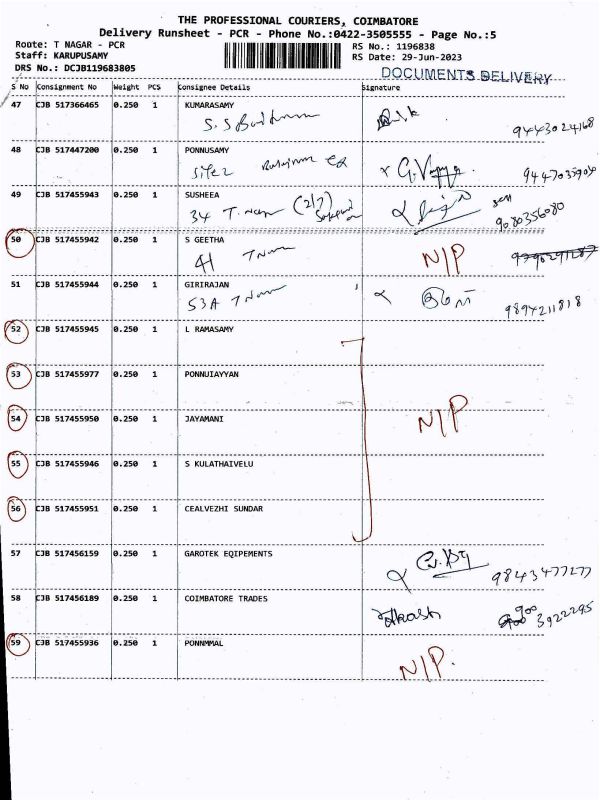 THE PROFESSIONAL COURIERS, COIMBATORE
Delivery Runsheet - PCR - Phone No.:0422-3505555 - Page No.:5
Route: T NAGAR - PCR RS No.: 1196838
Staff: KARUPUSAMY RS Date: 29-Jun-2023
DRS No.: DCJB119683805 DOCUMENTS DELIVERY
S No Consignment No Weight PCS Consignee Details Signature
47 CJB 517366465 0.250 1 KUMARASAMY
9443024168
48 CJB 517447200 0.250 1 PONNUSAMY
Site 2
49 CJB 517455943 0.250 1 SUSHEEA
34 T. Nagar (2/7) 9080356080
50 CJB 517455942 0.250 1 S GEETHA
41 T Nagar N/P
51 CJB 517455944 0.250 1 GIRIRAJAN
53A T Nagar 9894211818
52 CJB 517455945 0.250 1 L RAMASAMY
53 CJB 517455977 0.250 1 PONNUIAYYAN
54 CJB 517455950 0.250 1 JAYAMANI
N/P
55 CJB 517455946 0.250 1 S KULATHAIVELU
56 CJB 517455951 0.250 1 CEALVEZHI SUNDAR
57 CJB 517456159 0.250 1 GAROTEK EQIPEMENTS
9843477277
58 CJB 517456189 0.250 1 COIMBATORE TRADES
900 3922295
59 CJB 517455936 0.250 1 PONNMMAL
N/P.